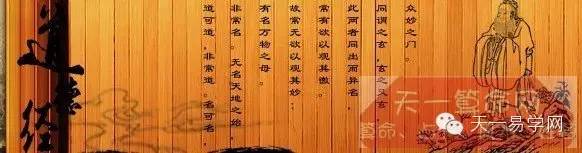 道德經
道可道，非常道。名可名，
非常名。无名天地之始，
有名万物之母。
故常无欲以观其妙；
常有欲以观其徼。
此两者同出而异名，
同谓之玄，玄之又玄，
众妙之门。
天一算命网
算命、
天一易学网